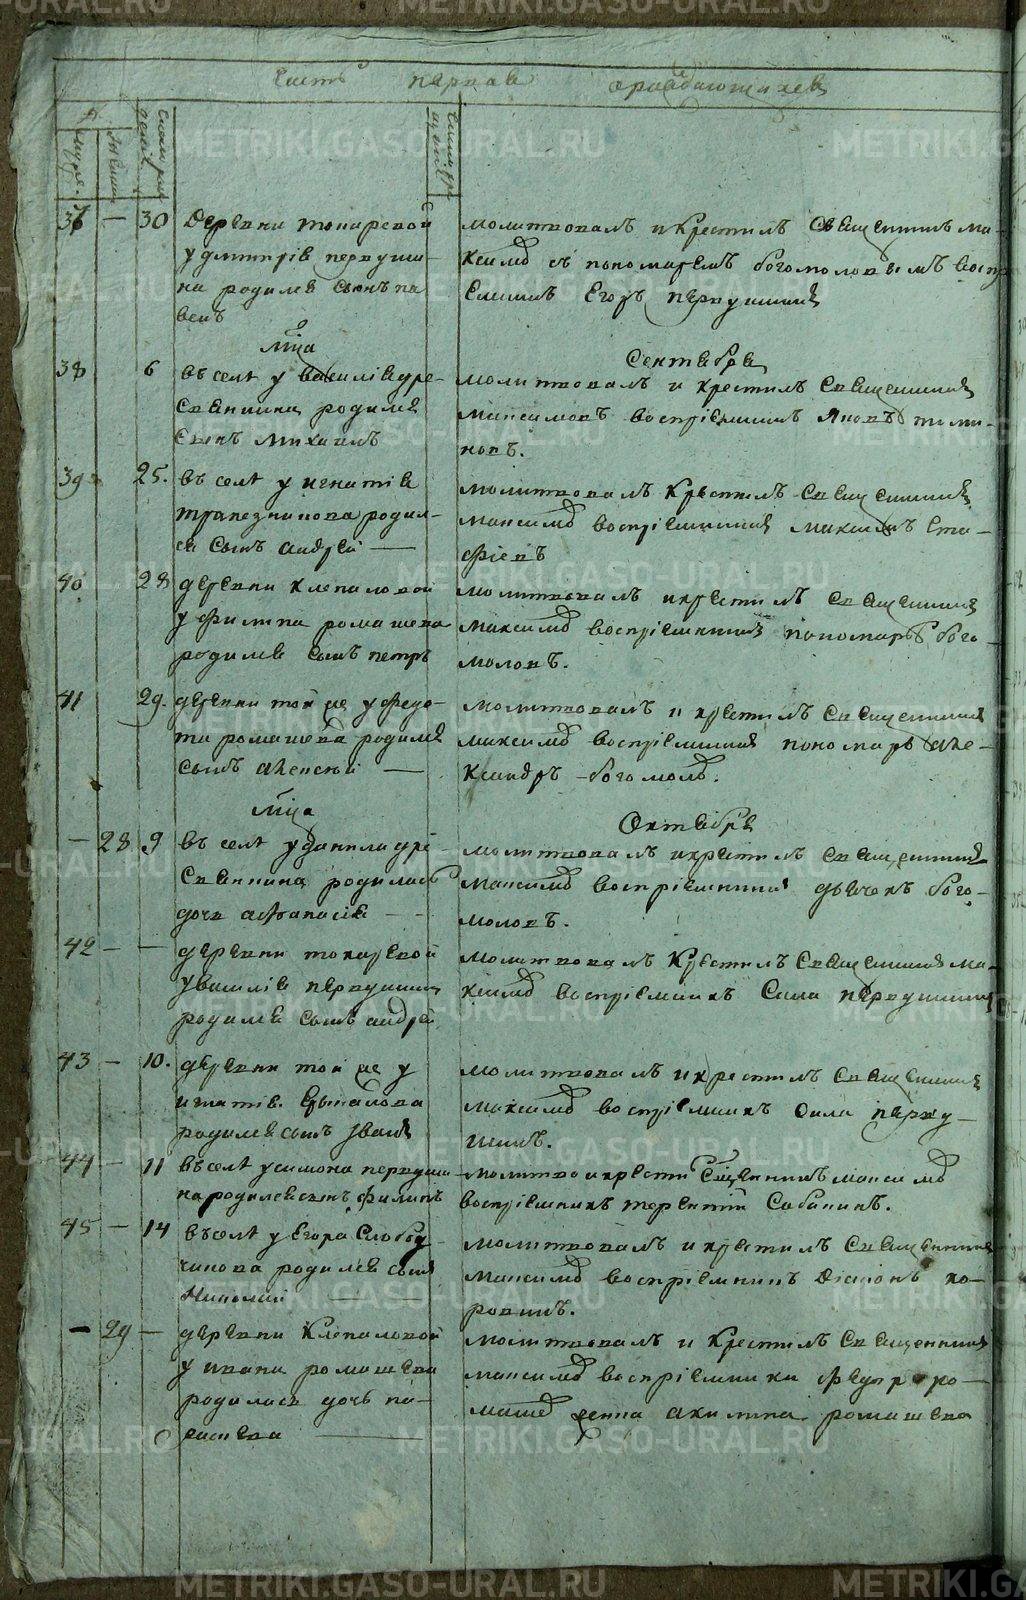 METRIKI.GASO-URAL.RU
Часть первая о раждающихся
муже.
женс
37 — 30 Деревни токаревой
у дмитрiя первуши-
на родился сынъ па
велъ
молитвовалъ и крестилъ священникъ ма-
ксимъ съ пономаремъ богомоловымъ воспр
Егоръ первушинъ
Мца Сентября
38 6 въ селѣ у василiя дре-
свянкина родился
сынъ михаилъ
молитвовалъ и крестилъ священникъ
максимовъ воспрiемникъ яковъ
новъ.
39 25. въ селѣ у игнатiя
трапезникова родил-
ся сынъ андрей —
молитвовалъ крестилъ священникъ
максимъ воспрiемникъ максимъ ста-
фiевъ
40 28 деревни клепаловой
у филипа ромашева
родился сынъ петръ
молитвовалъ и крестилъ священникъ
максимъ воспрiемникъ пономарь бого-
моловъ.
41 29. деревни той же у федо-
та ромашева родился
сынъ алексѣй —
молитвовалъ и крестилъ священникъ
максимъ воспрiемникъ пономарь але-
ксандръ богомоло.
Мца Октября
— 28 9 въ селѣ у данила дре
свянкина родилась
дочь афанасiя — —
молитвовалъ и крестилъ священникъ
максимъ воспрiемникъ дьячекъ бого-
моловъ.
42 — — деревни токаревой
у василiя первушина
родился сынъ андрей
молитвовалъ крестилъ священникъ ма-
ксимъ воспрiемникъ Сила первушинъ
43 — 10. деревни той же у
игнатiя
родился сынъ iванъ
молитвовалъ и крестилъ священникъ
максимъ воспрiемникъ сила перву-
шинъ.
44 — 11 въ селѣ у симона первуши
на родился сынъ филипъ
молитво и крести священникъ максимъ
воспрiемникъ терентiй Сабанинъ.
45 — 14 въ селѣ у Егора Слобод
чикова родился сынъ
Николай
молитвовалъ и крестилъ священникъ
максимъ воспрiемникъ ко-
ровинъ.
— 29 — деревни Клепаловой
у ивана ромашева
родилась дочь па-
раскева
молитвовалъ и крестилъ священникъ
максимъ воспрiемники федоръ ро-
машевъ акилина ромашева